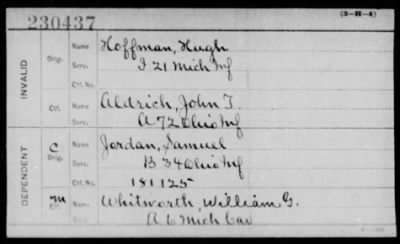 230437
(3-H-4)
INVALID
Orig.
Name
Hoffman, Hugh
Serv.
I 21 Mich Inf
Ctf. No.
Ctf.
Name
Aldrich, John T.
Serv.
A 72 Ohio Inf
DEPENDENT
C
Orig.
Name
Jordan, Samuel
Serv.
B 34 Ohio Inf
Ctf. No.
181125
M
Ctf.
Name
Whitworth, William G.
Serv.
A 6 Mich Cav